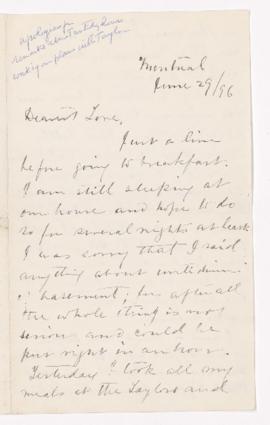 apologises for
remarks about
working on plans with Taylor
Montreal
June 29/96
Dearest Love,
Just a line
before going to breakfast.
I am still sleeping at
our house and hope to do
so for several nights at least
I was sorry that I said
anything about
basement, for after all
the whole thing is not
serious and could be
put right in an hour.
Yesterday I took all my
meals at the Taylors and